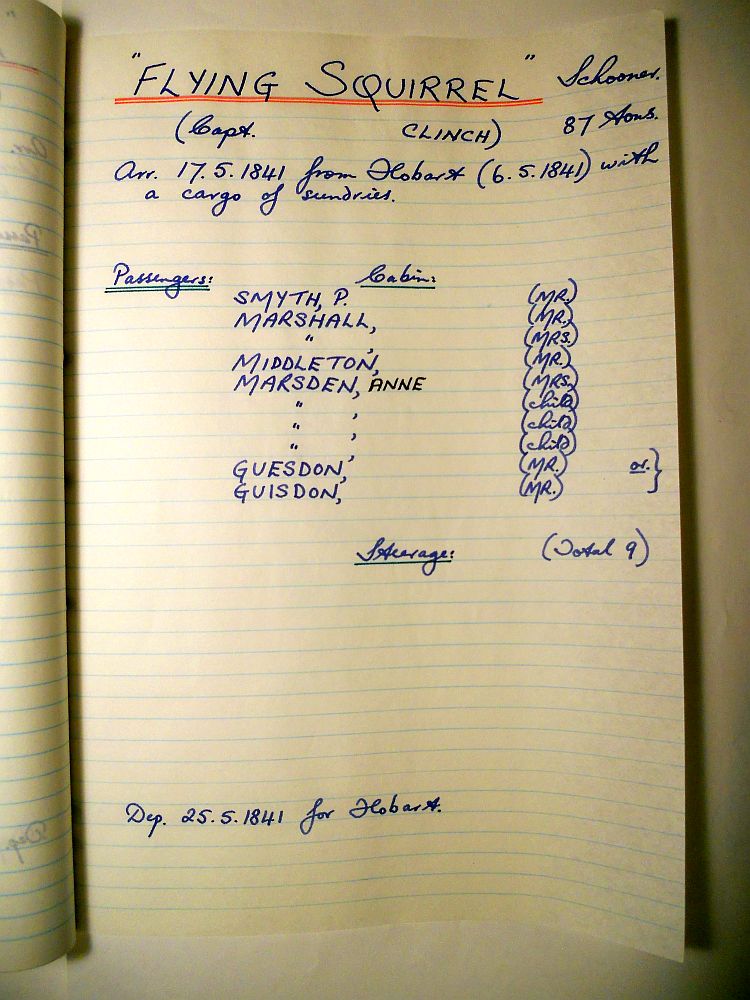 "FLYING SQUIRREL" Schooner.
(Capt. CLINCH) 87 tons.
Arr. 17.5.1841 from Hobart (6.5.1841) with
a cargo of sundries.
Passengers: Cabin:
SMYTH, P. (MR.)
MARSHALL, (MR.)
" , (MRS.)
MIDDLETON, (MR.)
MARSDEN, ANNE (MRS.)
" , (child)
" , (child)
" , (child)
GUESDON, (MR.) or. }
GUISDON, (MR.)
Steerage: (Total 9)
Dep. 25.5.1841 for Hobart.